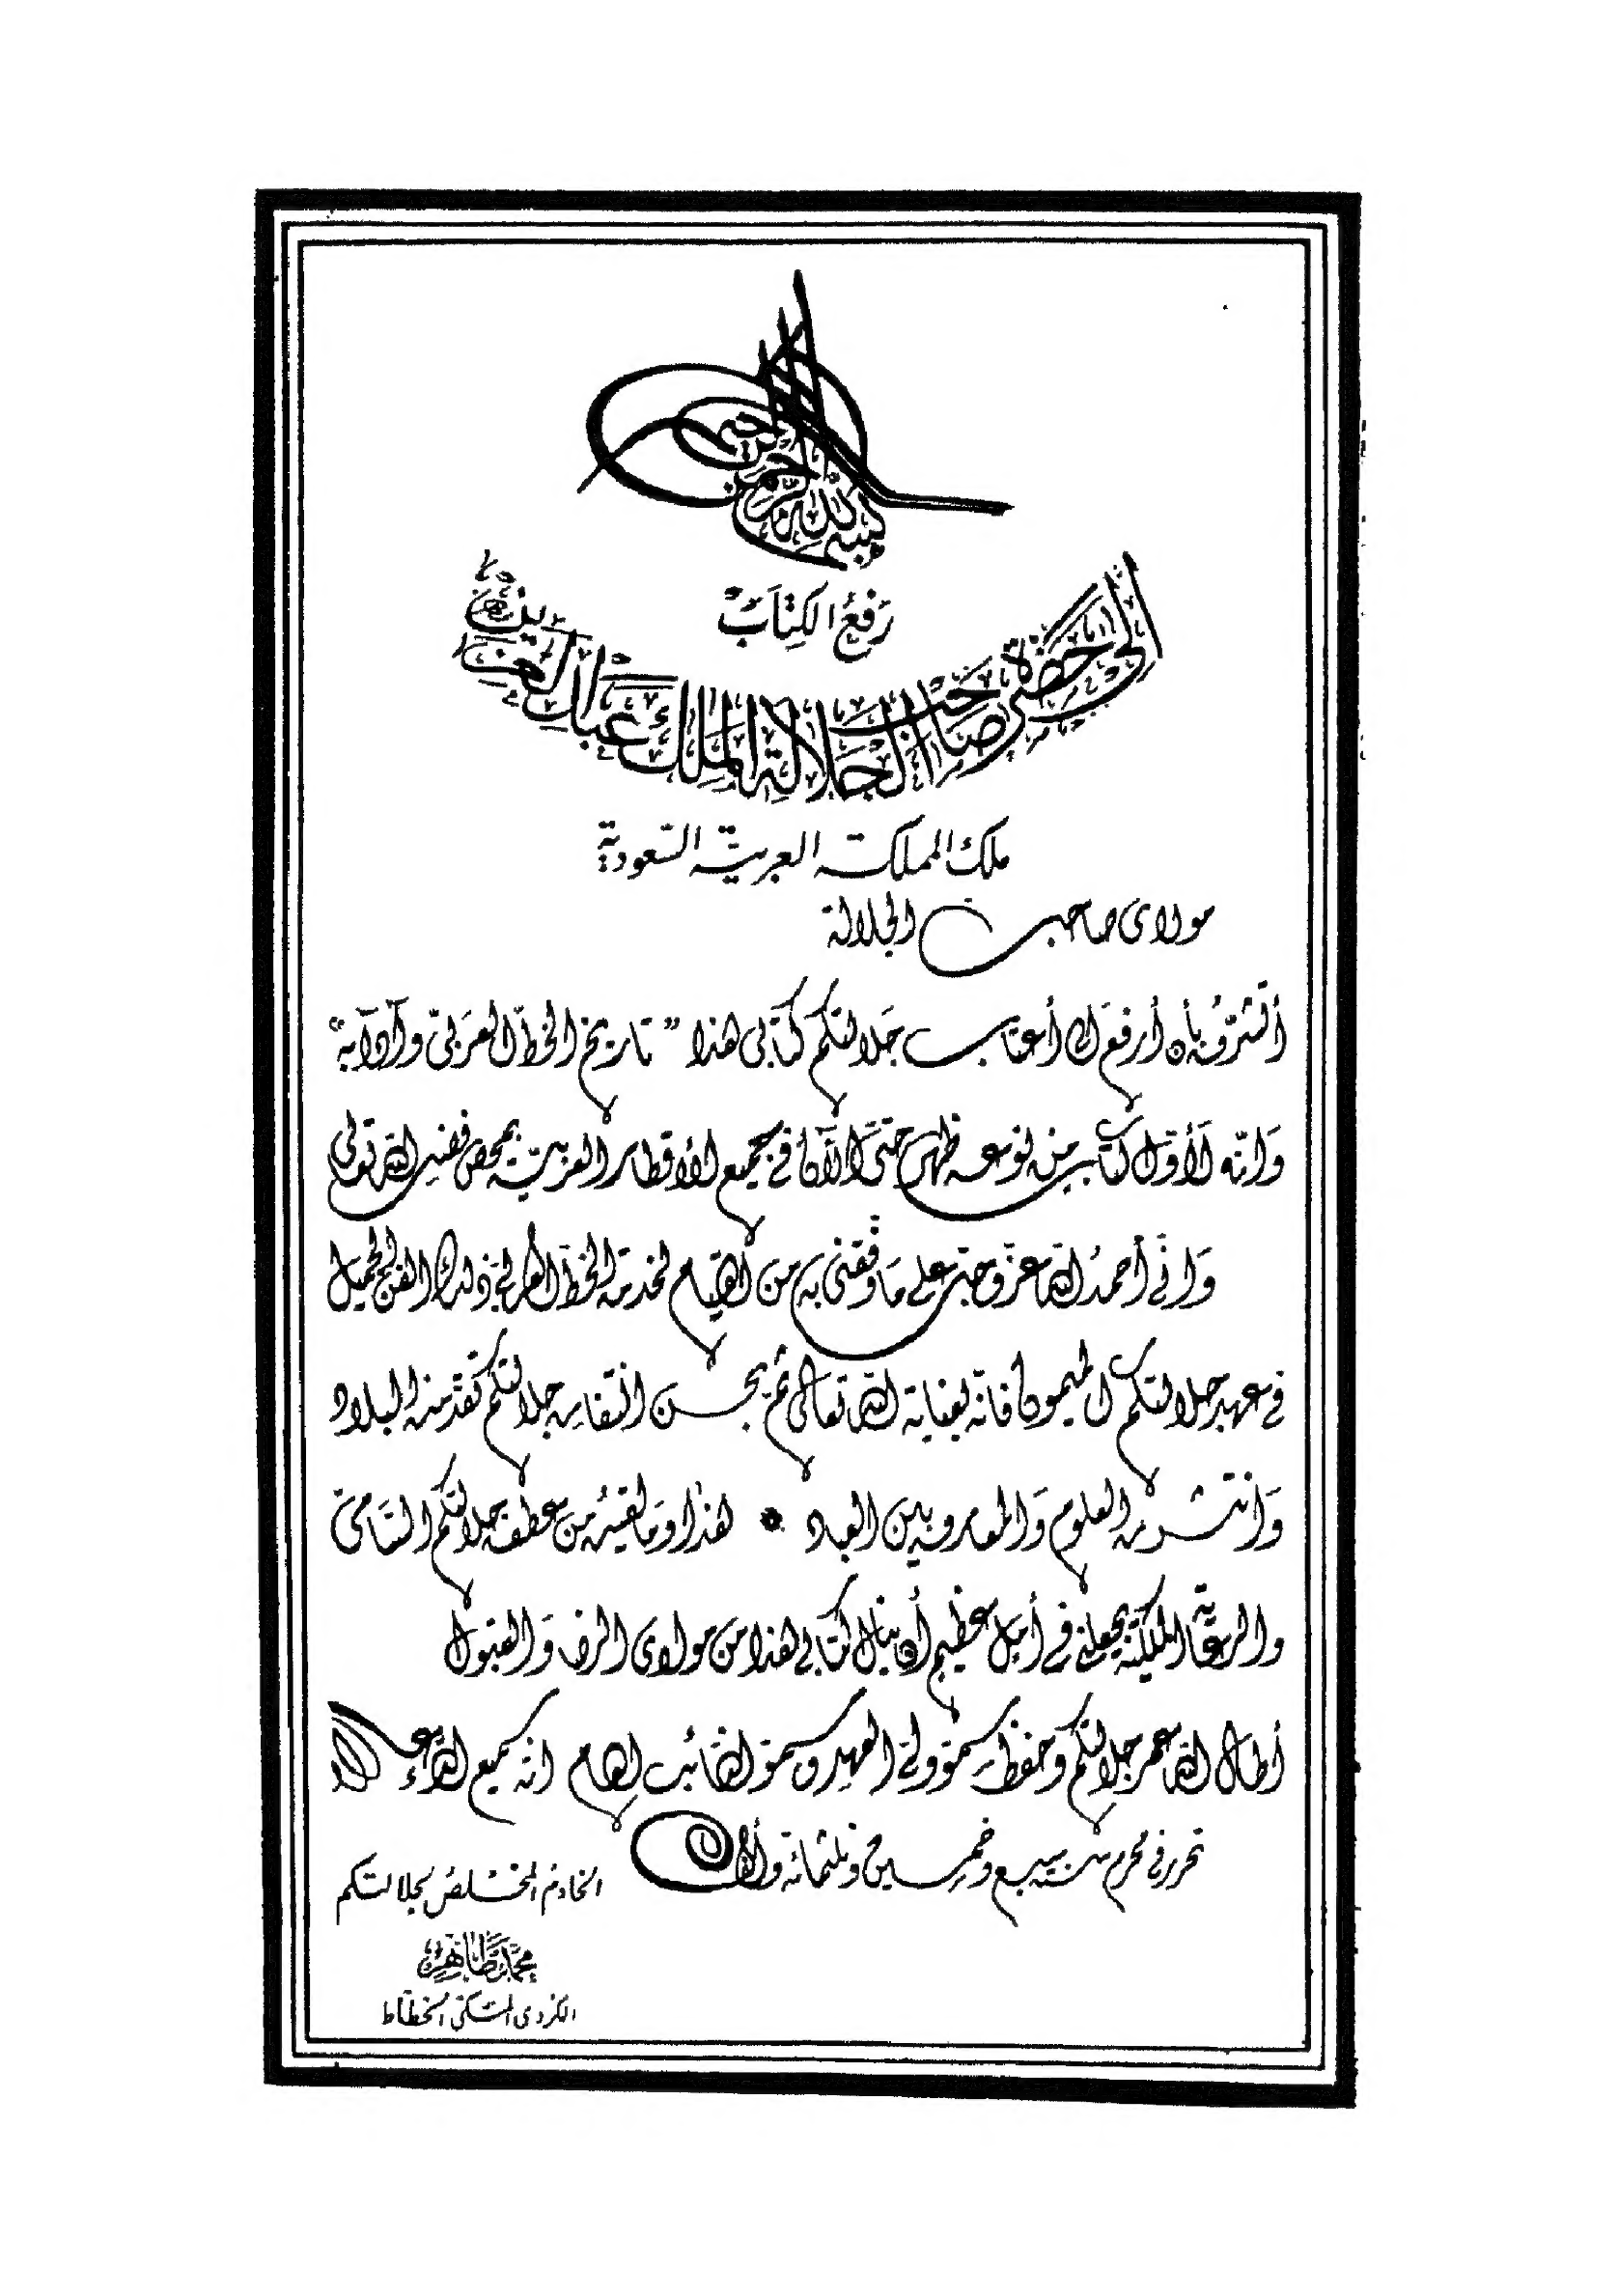 بسم الله الرحمن الرحيم
رفع الكتاب
إلى حضرة صاحب الجلالة الملك عبد العزيز
ملك المملكة العربية السعودية
مولاى صاحب الجلالة
أتشرف بأن أرفع إلى أعتاب جلالتكم كتابى هذا "تاريخ الخط العربى وآدابه"
وانه لأول كتاب من نوعه ظهر حتى الآن في جميع الأقطار العربية بمحض فضل الله تعالى
وانى أحمد الله عز وجل على ما وفقنى به من القيام لخدمة الخط العربى ذلك الفن الجميل
في عهد جلالتكم الميمون فانه بعناية الله تعالى ثم بحسن التفات جلالتكم تقدمت البلاد
وانتشرت العلوم والمعارف بين العباد * هذا وما لقيته من عطف جلالتكم السامى
والرعاية الملكية يجعلنى في أمل عظيم أن ينال كتابى هذا من مولاى الرضا والقبول
أطال الله عمر جلالتكم وحفظ سمو ولى العهد وسمو النائب العام انه سميع الدعاء
تحرر في محرم سنة سبع وخمسين وثلثمائة وألف
الخادم المخلص لجلالتكم
محمد طاهر
الكردى المكى الخطاط